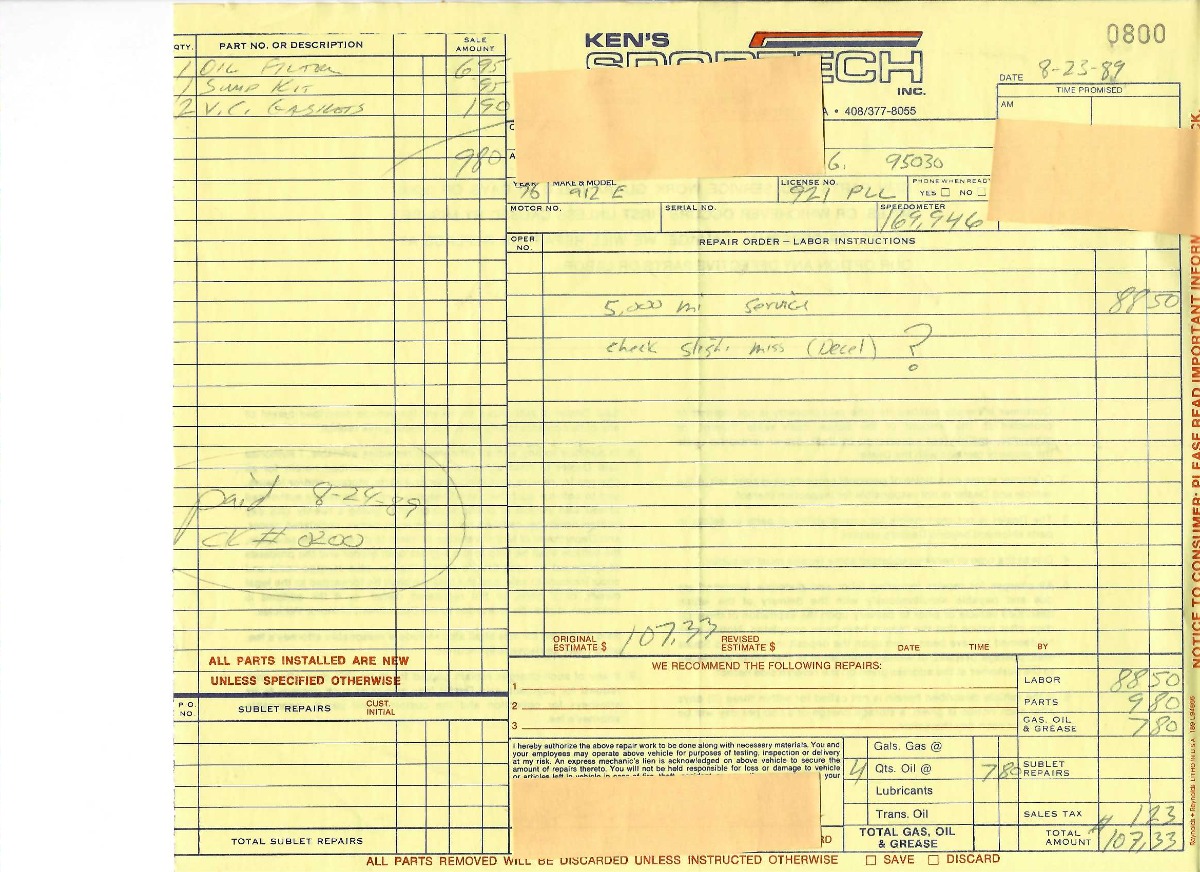 KEN'S
SPORTECH
INC.
A • 408/377-8055
0800
DATE 8-23-89
TIME PROMISED
AM
G. 95030
YEAR 76 MAKE & MODEL 912 E LICENSE NO. 921 PLL PHONE WHEN READY YES NO
MOTOR NO. SERIAL NO. SPEEDOMETER 169,946
QTY. PART NO. OR DESCRIPTION SALE AMOUNT
1 OIL FILTER 6 95
1 SUMP KIT 95
2 V.C. GASKETS 1 90
9 80
paid 8-24-89
CK # 0200
ALL PARTS INSTALLED ARE NEW
UNLESS SPECIFIED OTHERWISE
P.O. NO. SUBLET REPAIRS CUST. INITIAL
TOTAL SUBLET REPAIRS
OPER NO. REPAIR ORDER – LABOR INSTRUCTIONS
5,000 mi Service 88 50
check slight miss (Decel) ?
ORIGINAL ESTIMATE $ 107.33 REVISED ESTIMATE $ DATE TIME BY
WE RECOMMEND THE FOLLOWING REPAIRS:
1
2
3
LABOR 88 50
PARTS 9 80
GAS, OIL & GREASE 7 80
SUBLET REPAIRS
SALES TAX 1 23
TOTAL AMOUNT # 107.33
I hereby authorize the above repair work to be done along with necessary materials. You and
your employees may operate above vehicle for purposes of testing, inspection or delivery
at my risk. An express mechanic's lien is acknowledged on above vehicle to secure the
amount of repairs thereto. You will not be held responsible for loss or damage to vehicle
or articles left in vehicle in case of fire, theft, your
Gals. Gas @
4 Qts. Oil @ 7 80
Lubricants
Trans. Oil
TOTAL GAS, OIL & GREASE
ALL PARTS REMOVED WILL BE DISCARDED UNLESS INSTRUCTED OTHERWISE SAVE DISCARD
NOTICE TO CONSUMER: PLEASE READ IMPORTANT INFORM CK.